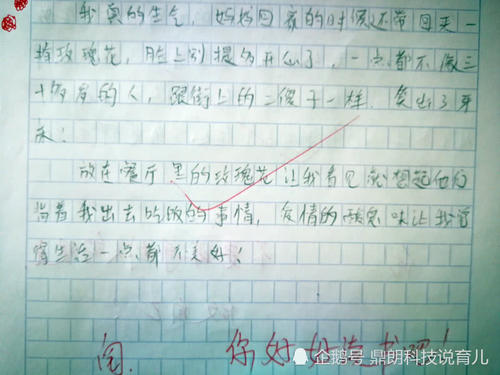 我真的生气,妈妈回家的时候还带回来一
枝玫瑰花,脸上别提多开心了,一点都不像三
十多岁的人,跟街上的二傻子一样,笑出了牙
床!
放在餐厅里的玫瑰花让我看见就想起他们
背着我出去吃饭的事情,爱情的酸臭味让我觉
得生活一点都不美好!
阅. 你好好读书吧!
企鹅号 鼎朗科技说育儿